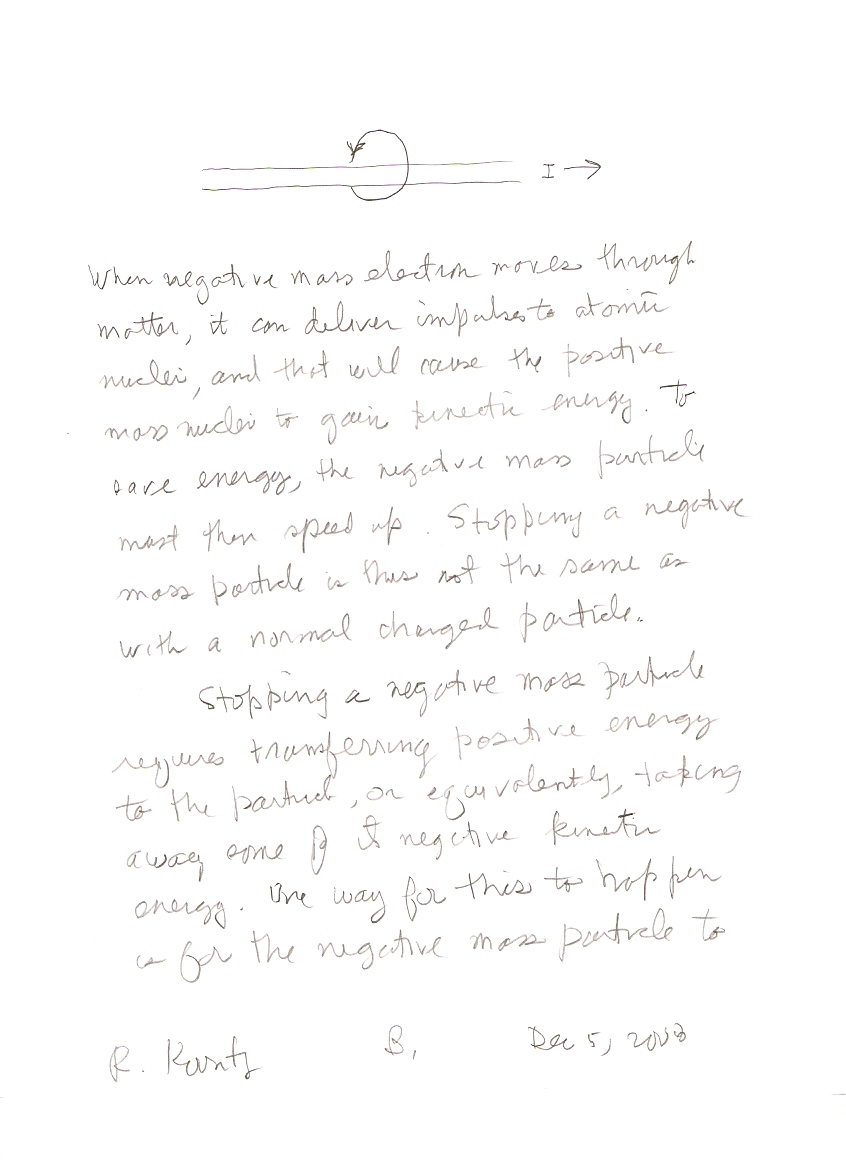 I →
When negative mass electron moves through
matter, it can deliver impulses to atomic
nuclei, and that will cause the positive
mass nuclei to gain kinetic energy. To
save energy, the negative mass particle
must then speed up. Stopping a negative
mass particle is thus not the same as
with a normal charged particle.
Stopping a negative mass particle
requires transferring positive energy
to the particle, or equivalently, taking
away some of it negative kinetic
energy. One way for this to happen
is for the negative mass particle to
R. Kurtz B, Dec 5, 2003